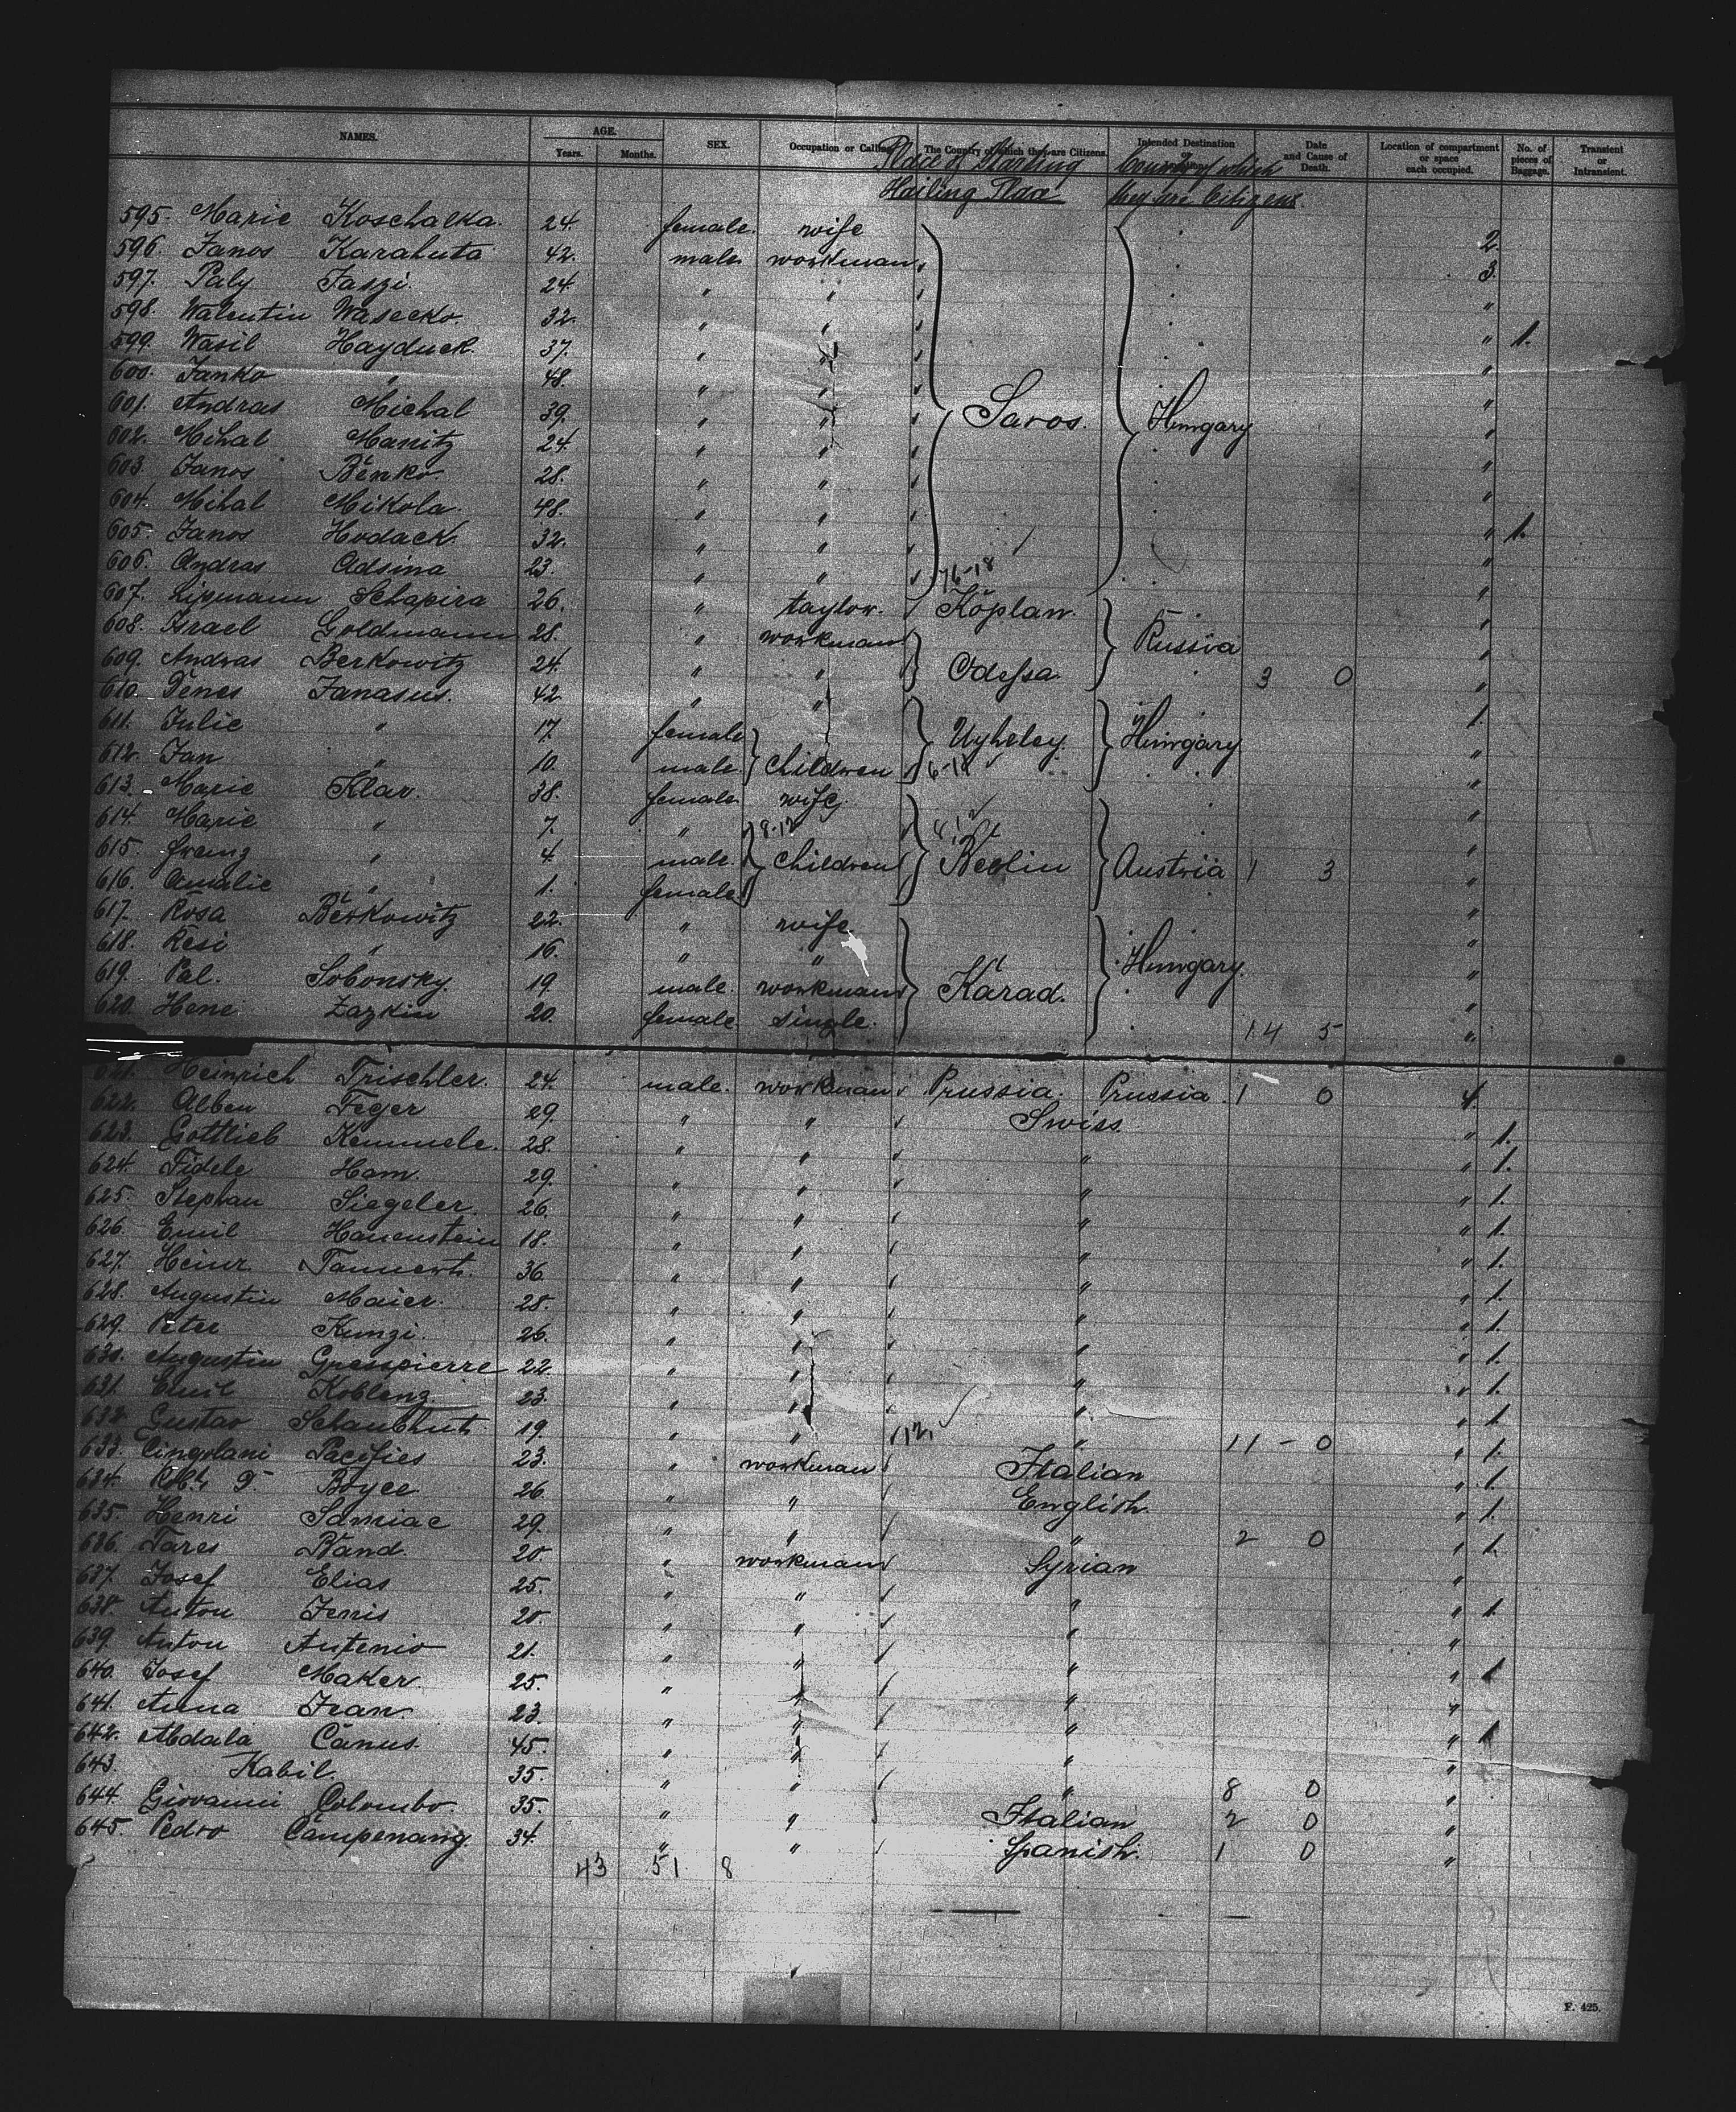 NAMES. AGE. Years. Months. SEX. Occupation or Calling. The Country of which they are Citizens. Intended Destination Date and Cause of Death. Location of compartment or space each occupied. No. of pieces of Baggage. Transient or Intransient.
Place of Starting Country of which
Hailing Place they are Citizens
595. Marie Koschalka. 24. female. wife 2.
596. Janos Karahuta 42. male workman 3.
597. Paly Jaszi. 24. " " "
598. Walentin Wasecko. 32. " " " 1.
599. Wasil Hayduck. 37. " " "
600. Janko " 48. " " "
601. Andras Michal 39. " " Saros. Hungary "
602. Mihal Manitz 24. " " "
603. Janos Benko. 28. " " "
604. Mihal Mikola. 48. " " " 1.
605. Janos Hodack. 32. " " "
606. Andras Adsina 23. " " 76-18 "
607. Lipmann Schapira 26. " taylor. Köplaw. "
608. Israel Goldmann 28. " workman Russia "
609. Andras Berkowitz 24. " " Odessa. 3 0 "
610. Denes Janasus. 42. " " 1.
611. Julie " 17. female Ujheley. Hungary "
612. Jan " 10. male Children 6-18 "
613. Marie Klar. 38. female wife. "
614. Marie " 7. " 8-12 "
615. Franz " 4 male. Children Berlin Austria 1 3 "
616. Amalie " 1. female "
617. Rosa Berkowitz 22. " wife "
618. Resi " 16. " " Hungary. "
619. Pal. Sobonsky. 19. male. workman Karad. "
620. Hene Zazkin 20. female single. 14 5 "
621. Heinrich Trischler. 24. male. workman Prussia. Prussia. 1 0 4.
622. Alben Feger 29. " " Swiss " 1.
623. Gottlieb Kemmele. 28. " " " " 1.
624. Fidele Ham. 29. " " " " 1.
625. Stephan Siegeler. 26. " " " " 1.
626. Emil Hauenstein 18. " " " " 1.
627. Heinr. Tannert. 36. " " " " 1.
628. Augustin Maier. 28. " " " " 1.
629. Peter Kunzi. 26. " " " " 1.
630. Augustin Grosspierre 22. " " " " 1.
631. Emil Koblenz 23. " " " " 1.
632. Gustav Schaubhut. 19. " " 12, " 11 - 0 " 1.
633. Cingolani Pacifies 23. " workman Italian " 1.
634. Boyce 26. " " English. " 1.
635. Henri Samiac 29. " " " 2 0 " 1.
636. Tares Band. 20. " workman Syrian "
637. Josef Elias 25. " " " " 1.
638. Anton Jenis 20. " " " "
639. Anton Antenio 21. " " " " 1
640. Josef Maker. 25. " " " "
641. Anna Jean. 23. " " " " 1
642. Abdala Canus. 45. " " " "
643. Kabil. 35. " " " 8 0 "
644. Giovanni Colombo. 35. " " Italian 2 0 "
645. Pedro Campenang. 34. " " Spanish. 1 0 "
43 51 8
F. 425.